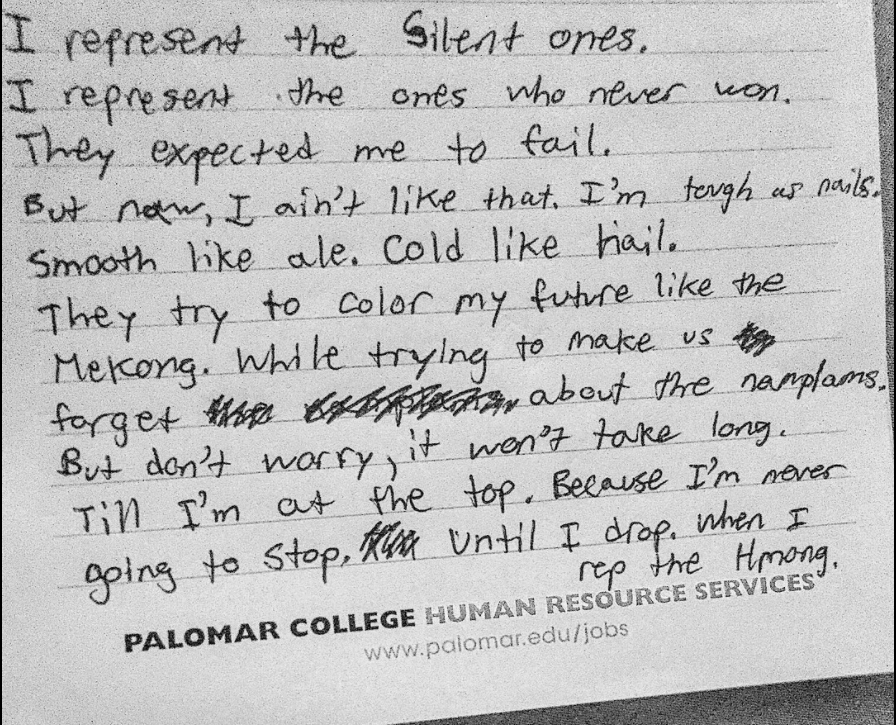 I represent the Silent ones.
I represent the ones who never won.
They expected me to fail.
But now, I ain't like that. I'm tough as nails.
Smooth like ale. Cold like hail.
They try to color my future like the
Mekong. While trying to make us
forget about the namplams.
But don't worry, it won't take long.
Till I'm at the top. Because I'm never
going to stop. Until I drop. When I
rep the Hmong.
PALOMAR COLLEGE HUMAN RESOURCE SERVICES
www.palomar.edu/jobs